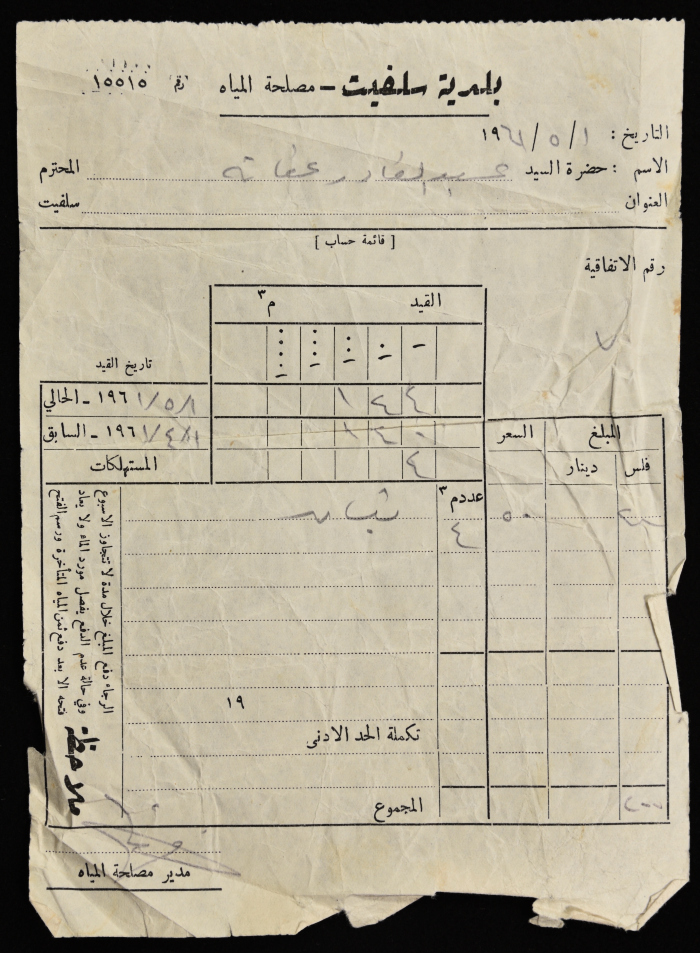 بلدية سلفيت - مصلحة المياه رقم ١٥٥١٥
التاريخ : ١ / ٥ / ١٩٦١
الاسم : حضرة السيد عبد القادر عفانه المحترم
العنوان سلفيت
[ قائمة حساب ]
رقم الاتفاقية
القيد م٣
١ ١٠ ١٠٠ ١٠٠٠ ١٠٠٠٠
تاريخ القيد
١/٥/١٩٦١ - الحالي ١ ٤ ٤
١/٤/١٩٦١ - السابق ١ ٤ ٠
المستهلكات ٤
المبلغ السعر
فلس دينار
عدد م٣
٢٠٠ ٥٠ ٤
١٩
تكملة الحد الادنى
المجموع ٢٠٠
ملاحظة
الرجاء دفع المبلغ خلال مدة لا تتجاوز الاسبوع
وفي حالة عدم الدفع يفصل مورد الماء ولا يعاد
فتحه الا بعد دفع ثمن المياه المتأخرة ورسم الفتح
مدير مصلحة المياه